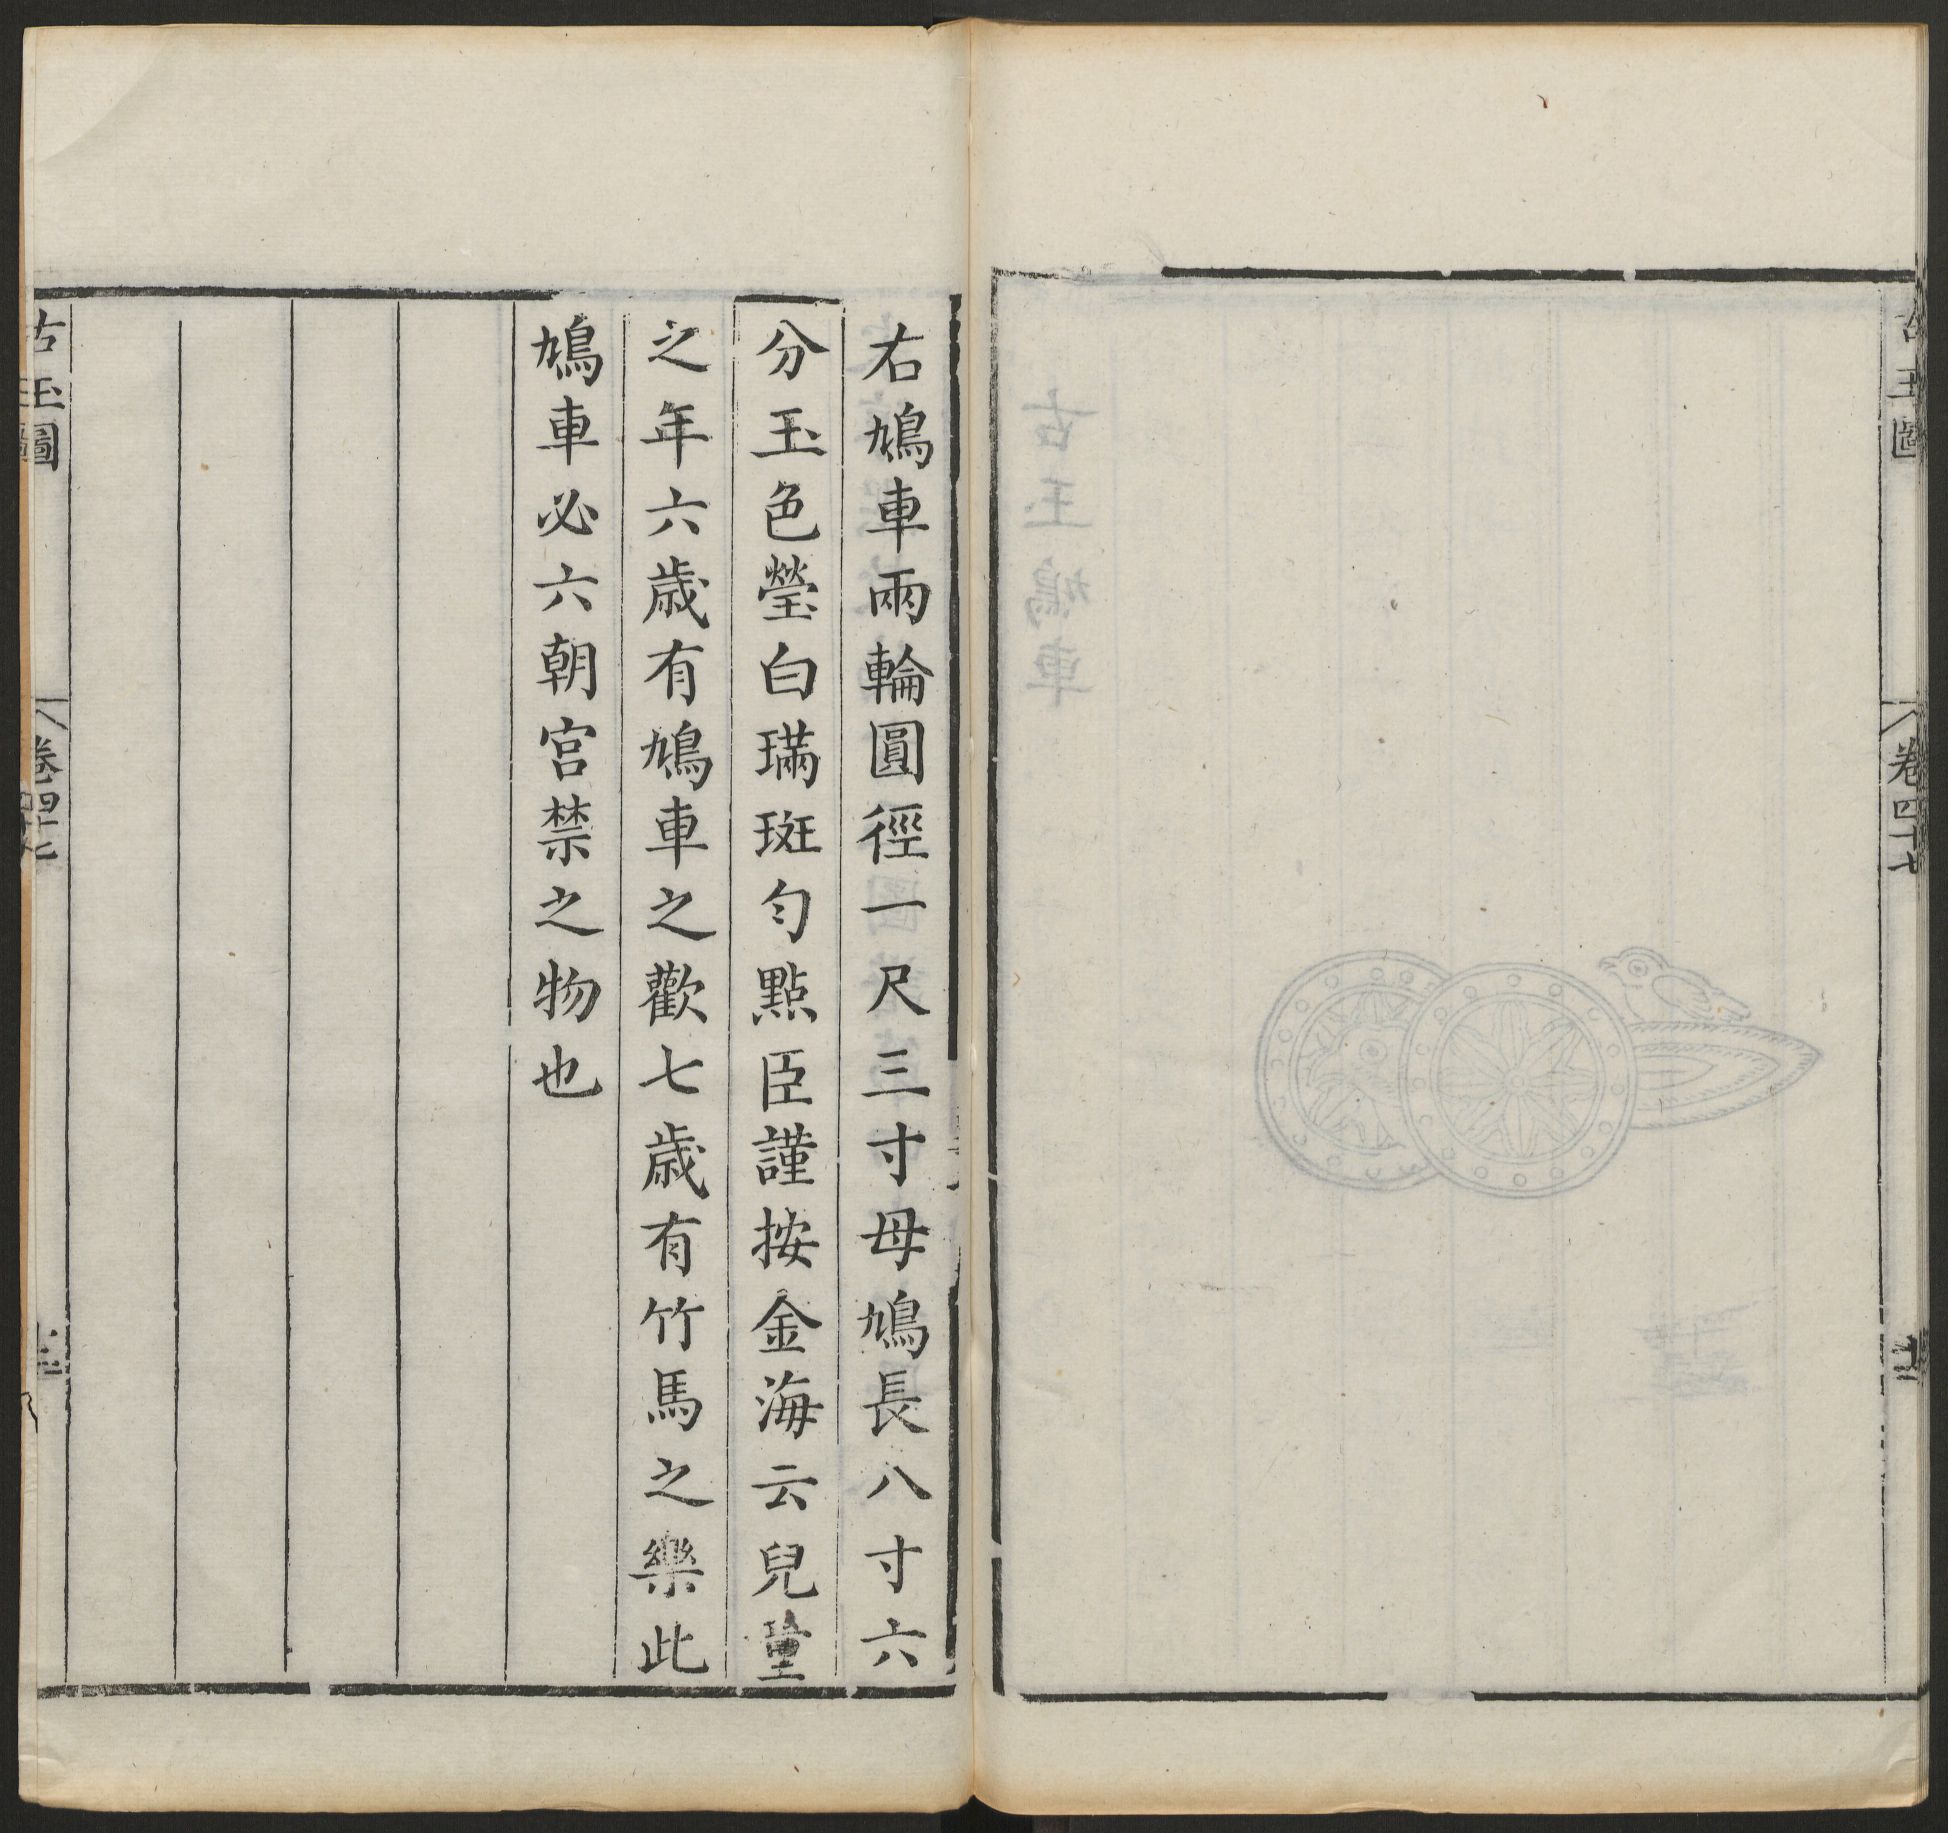 古玉圖
卷四十七
右鳩車兩輪圓徑一尺三寸母鳩長八寸六
分玉色瑩白璊斑勻點臣謹按金海云兒童
之年六歲有鳩車之歡七歲有竹馬之樂此
鳩車必六朝宮禁之物也
古玉圖
卷四十七